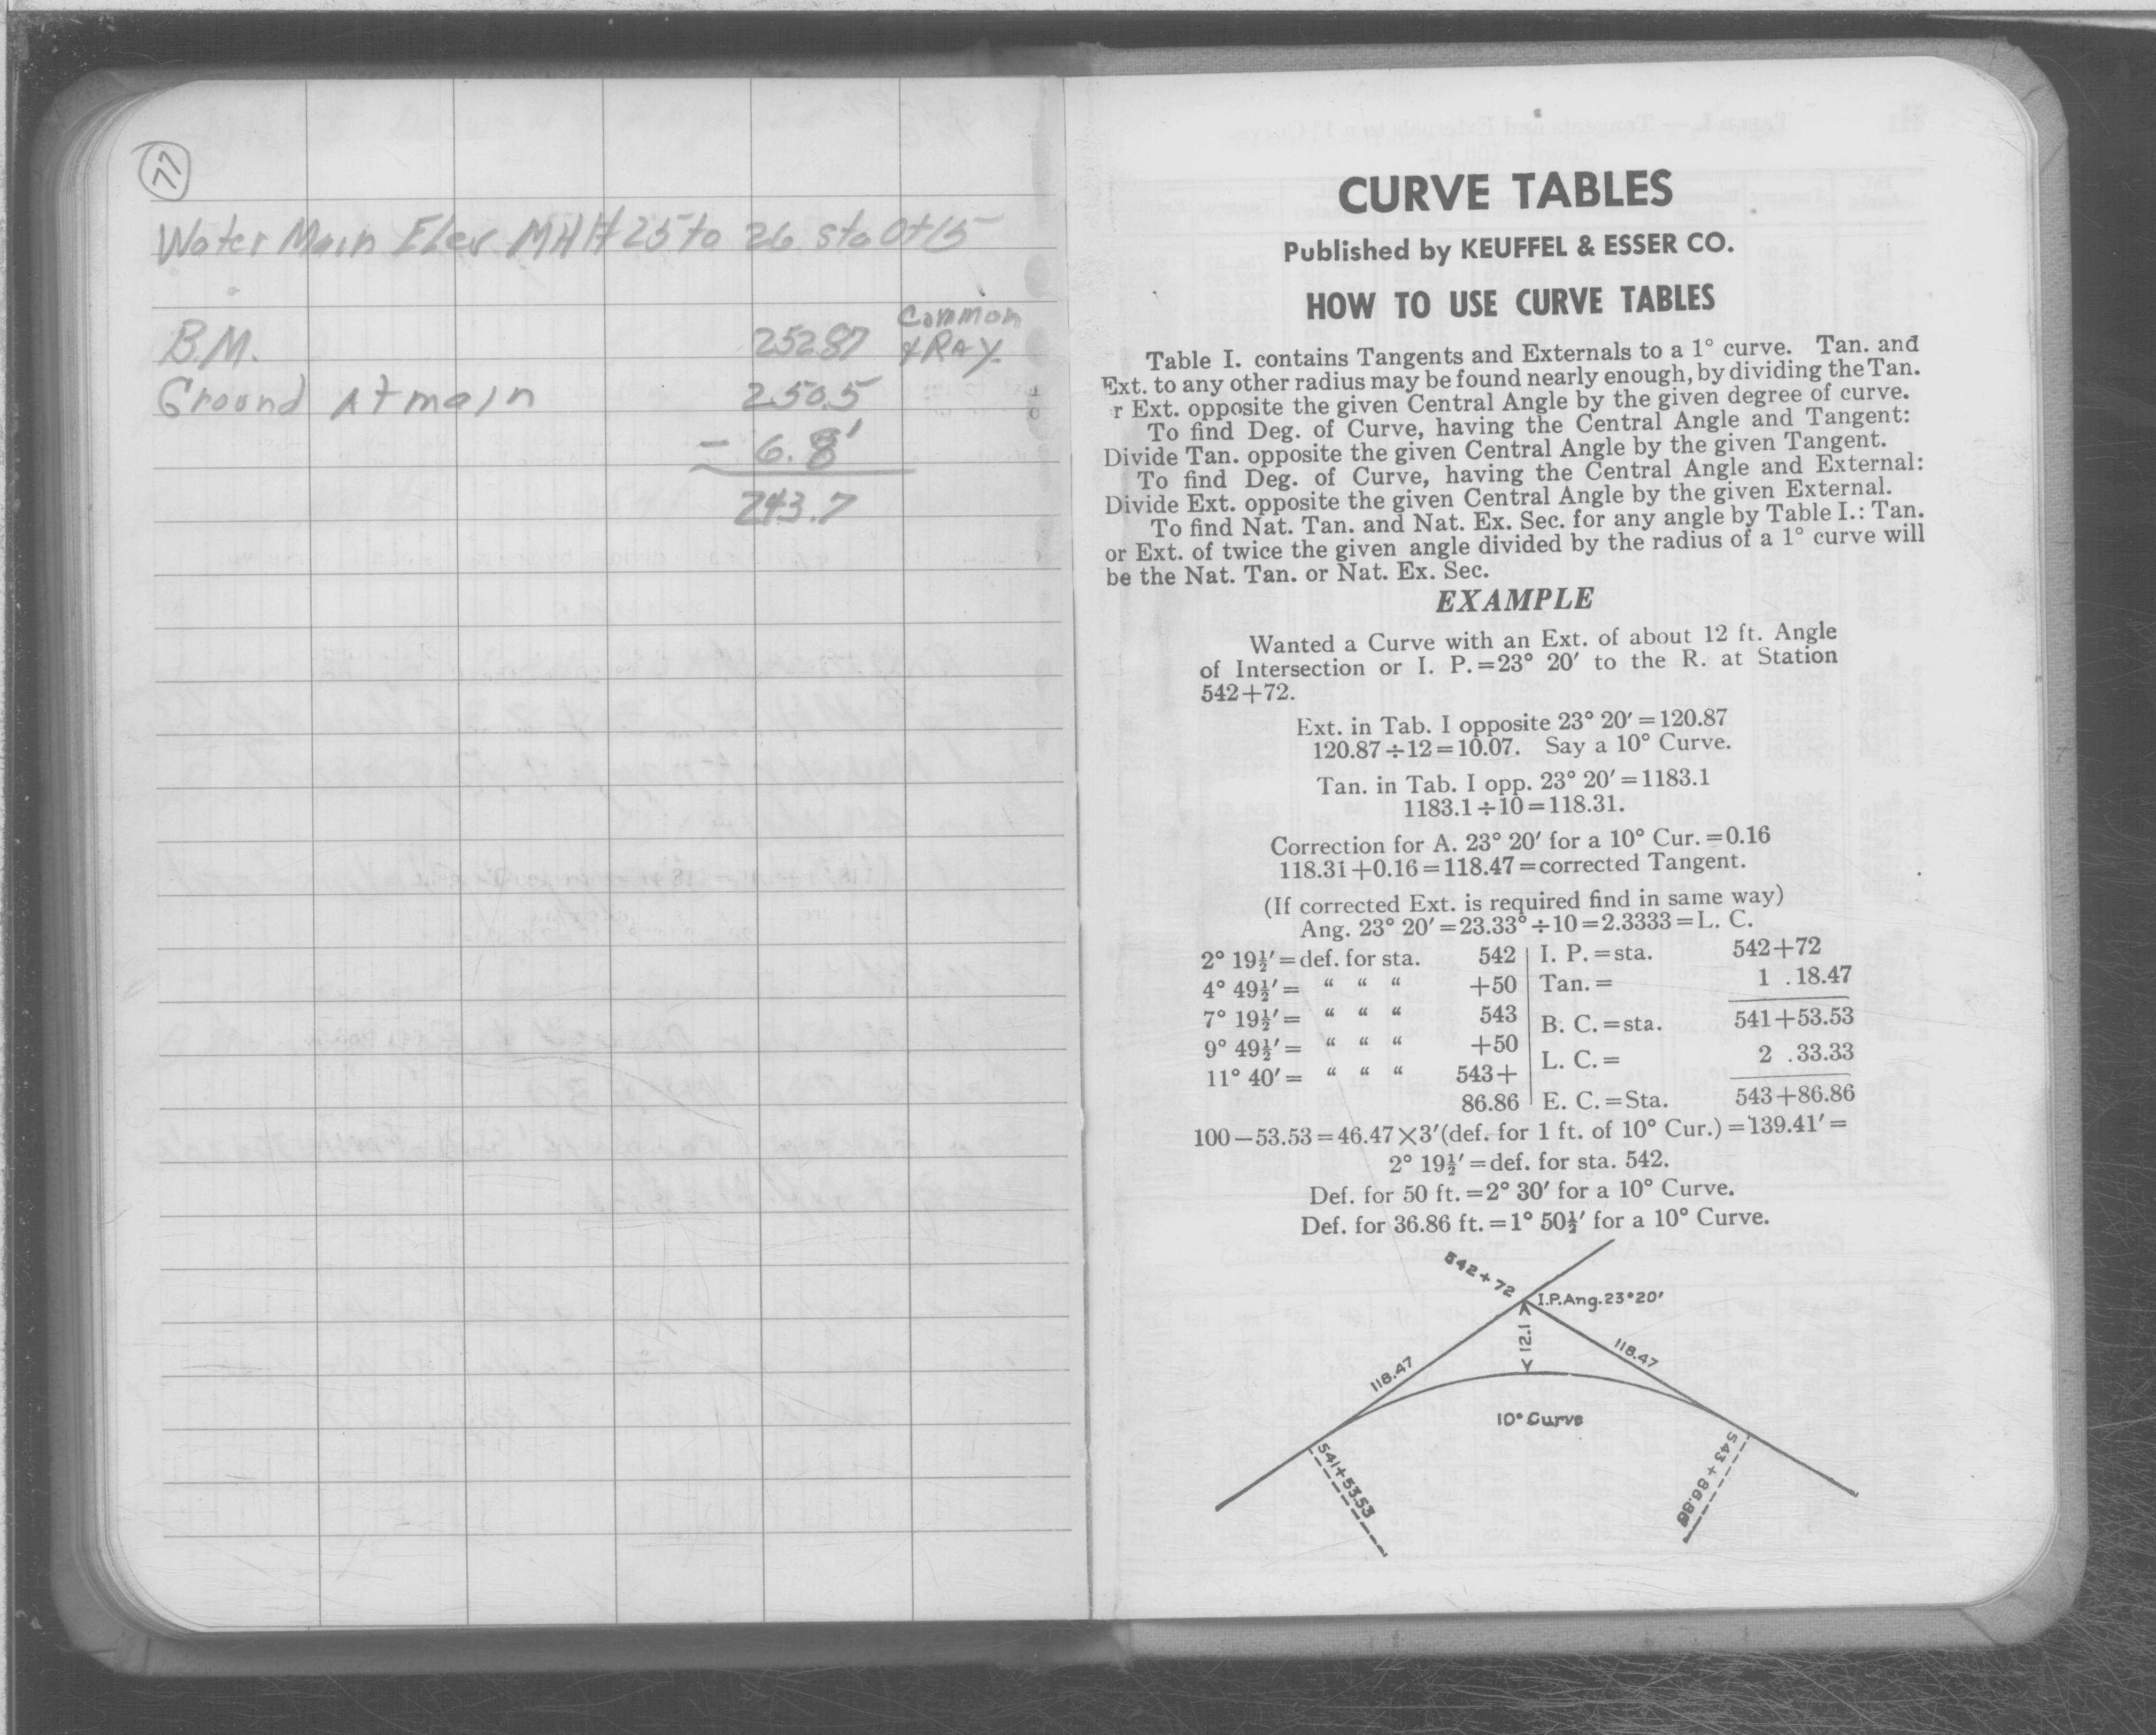 77
Water Main Elev. MH # 25 to 26. sta 0+65
Common
B.M. 252.87 & RAY.
Ground At main 250.5
- 6.8'
243.7
CURVE TABLES
Published by KEUFFEL & ESSER CO.
HOW TO USE CURVE TABLES
Table I. contains Tangents and Externals to a 1° curve. Tan. and
Ext. to any other radius may be found nearly enough, by dividing the Tan.
r Ext. opposite the given Central Angle by the given degree of curve.
To find Deg. of Curve, having the Central Angle and Tangent:
Divide Tan. opposite the given Central Angle by the given Tangent.
To find Deg. of Curve, having the Central Angle and External:
Divide Ext. opposite the given Central Angle by the given External.
To find Nat. Tan. and Nat. Ex. Sec. for any angle by Table I.: Tan.
or Ext. of twice the given angle divided by the radius of a 1° curve will
be the Nat. Tan. or Nat. Ex. Sec.
EXAMPLE
Wanted a Curve with an Ext. of about 12 ft. Angle
of Intersection or I. P.=23° 20′ to the R. at Station
542+72.
Ext. in Tab. I opposite 23° 20′=120.87
120.87÷12=10.07. Say a 10° Curve.
Tan. in Tab. I opp. 23° 20′=1183.1
1183.1÷10=118.31.
Correction for A. 23° 20′ for a 10° Cur.=0.16
118.31+0.16=118.47=corrected Tangent.
(If corrected Ext. is required find in same way)
Ang. 23° 20′=23.33°÷10=2.3333=L. C.
2° 19½′=def. for sta. 542 I. P.=sta. 542+72
4° 49½′= “ “ “ +50 Tan.= 1 .18.47
7° 19½′= “ “ “ 543 B. C.=sta. 541+53.53
9° 49½′= “ “ “ +50 L. C.= 2 .33.33
11° 40′= “ “ “ 543+
86.86 E. C.=Sta. 543+86.86
100−53.53=46.47×3′(def. for 1 ft. of 10° Cur.)=139.41′=
2° 19½′=def. for sta. 542.
Def. for 50 ft.=2° 30′ for a 10° Curve.
Def. for 36.86 ft.=1° 50½′ for a 10° Curve.
542+72
I.P.Ang.23°20′
12.1
118.47
118.47
10° Curve
541+53.53
543+86.86